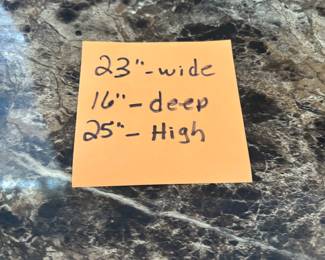 23"-wide
16"-deep
25"-High